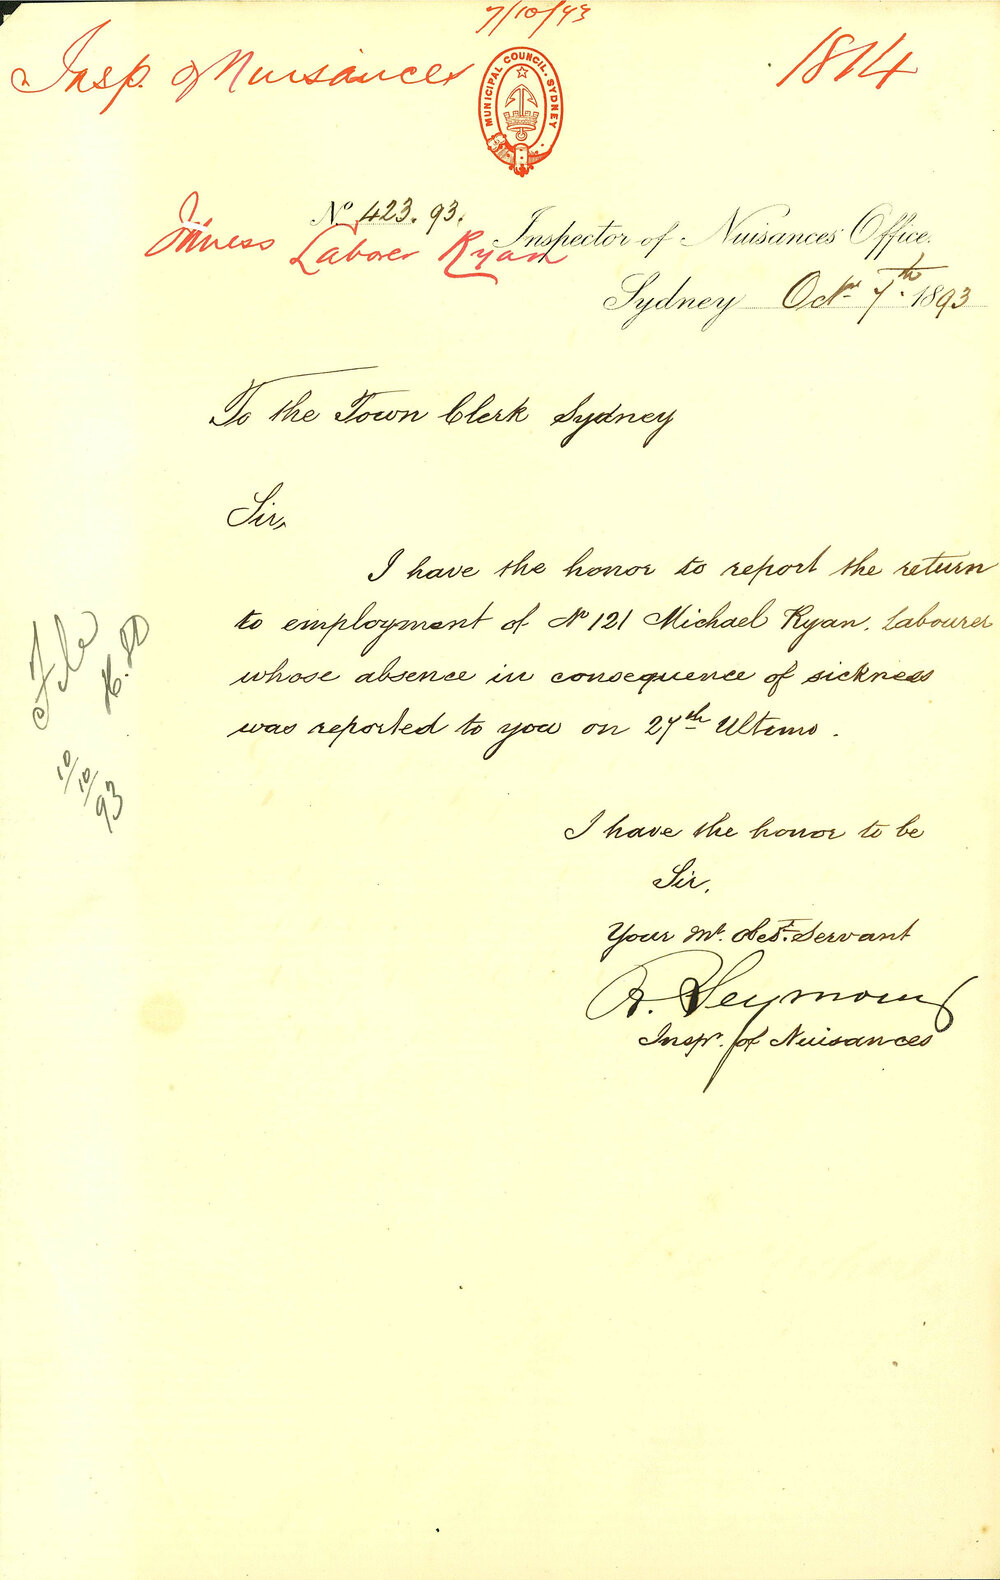 7/10/93
Insp. of Nuisances
1814
MUNICIPAL COUNCIL. SYDNEY
No 423. 93.
Illness Laborer Ryan
Inspector of Nuisances Office.
Sydney Octr 7th. 1893
To the Town Clerk Sydney
Sir,
I have the honor to report the return
to employment of No 121 Michael Ryan. Labourer
whose absence in consequence of sickness
was reported to you on 27th Ultimo.
File
10/10/93
I have the honor to be
Sir,
Your Mt. Obet. Servant
R. Seymour
Inspr. of Nuisances